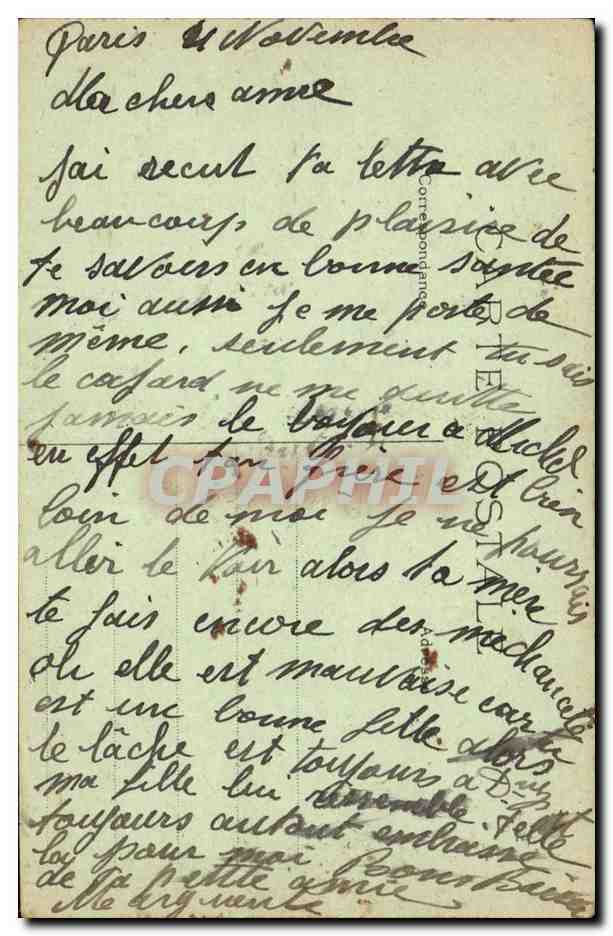 Paris 4 Novembre
Ma chere amie
J'ai recut ta lettre avec
beaucoup de plaisire de
te savoirs en bonne santée
moi aussi je me porte de
même, seulement tu sais
le cafard ne me quitte
jamais le a Michel
en effet ton frère est bien
loin de moi je ne pourrais
aller le voir alors ta mère
te fais encore des méchancetés
oh elle est mauvaise car tu
est une bonne fille. alors
le lâche est toujours a
ma fille lui ressemble
toujours autant embrasse
la pour moi Bons Baisers
de ta petite amie
Marguerite
CARTE POSTALE
Correspondance
Adresse
CPAPHIL